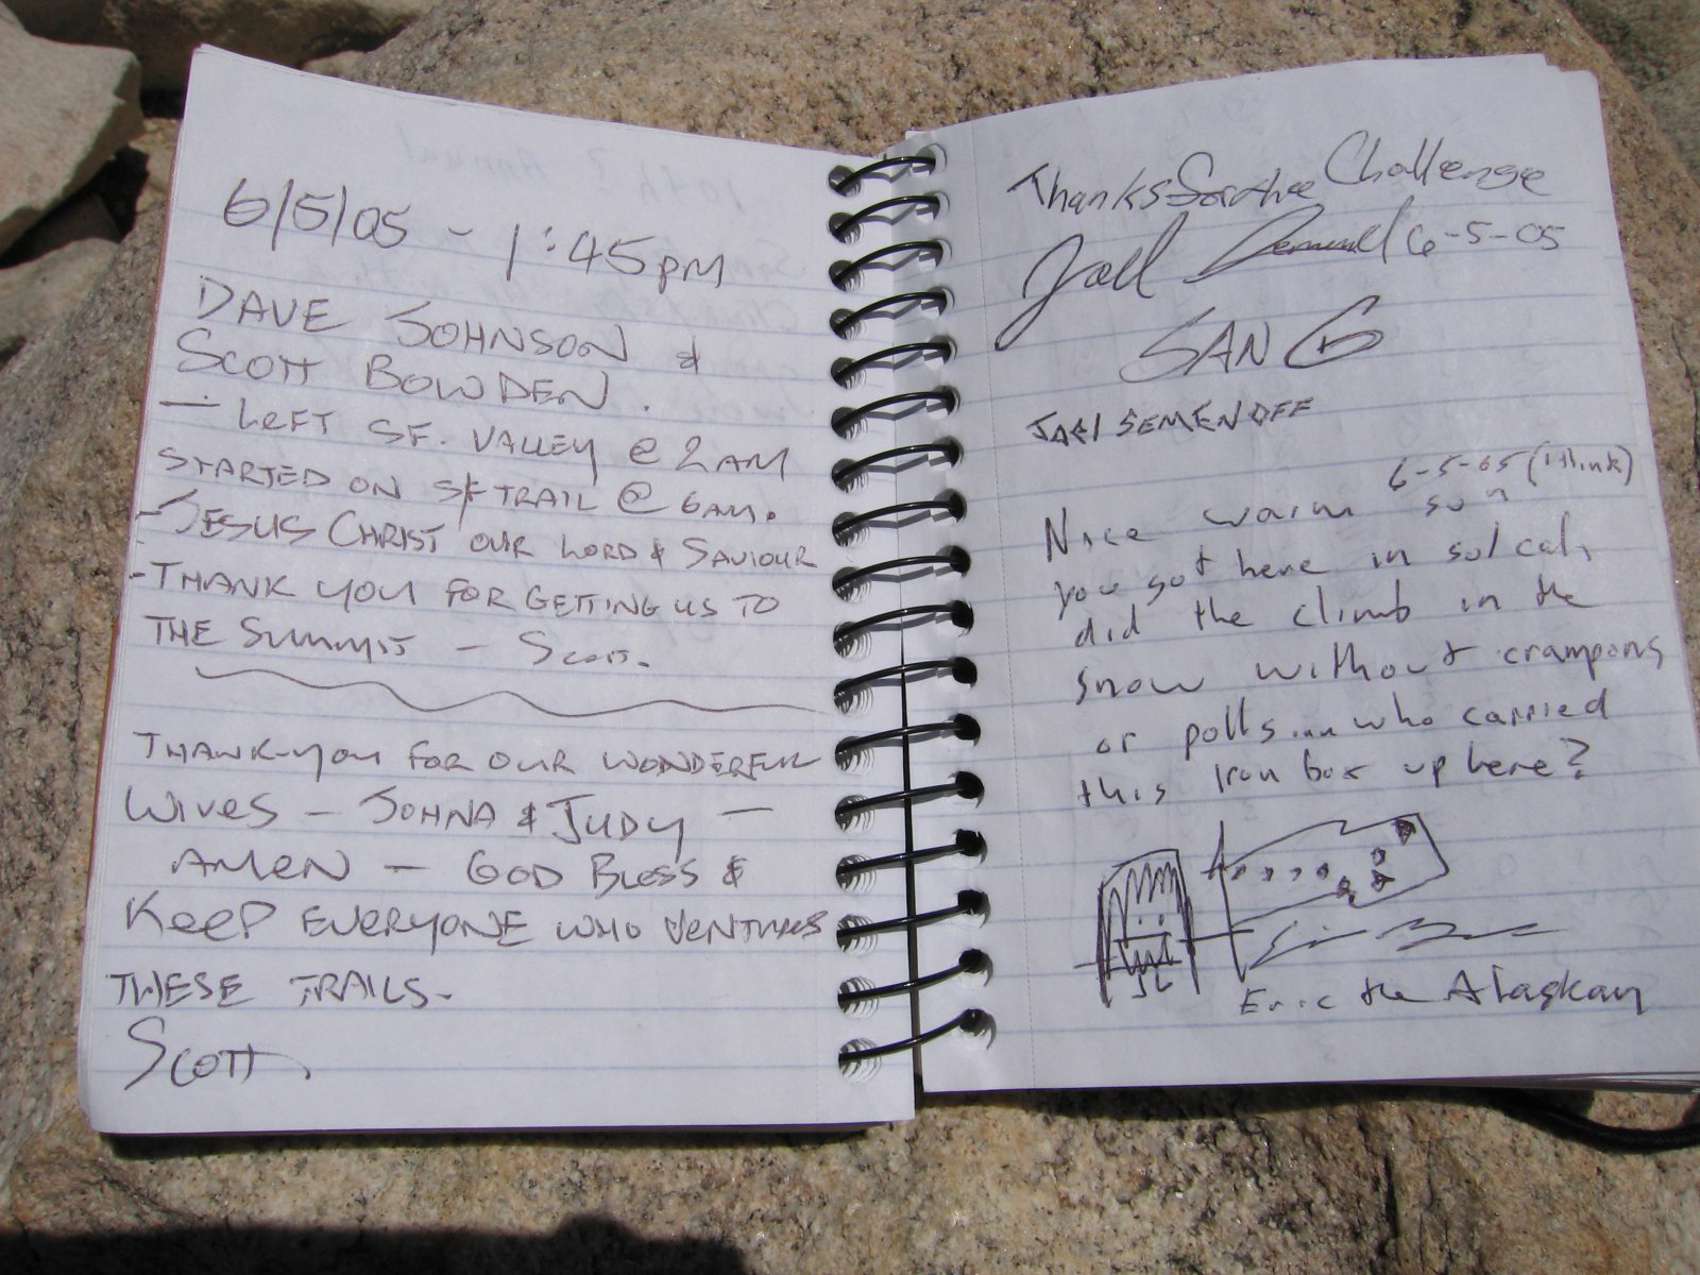 6/5/05 - 1:45PM
DAVE JOHNSON &
SCOTT BOWDEN.
— LEFT SF. VALLEY @ 2AM
STARTED ON SF TRAIL @ 6AM.
- JESUS CHRIST OUR LORD & SAVIOUR
- THANK YOU FOR GETTING US TO
THE SUMMIT — SCOTT.
THANK-YOU FOR OUR WONDERFUL
WIVES — JOHNA & JUDY —
AMEN — GOD BLESS &
KEEP EVERYONE WHO VENTURES
THESE TRAILS-
SCOTT.
Thanks for the Challenge
Joel 6-5-05
SAN G
JOEL SEMENOFF
6-5-05 (I think)
Nice warm sun
you got here in so/cal,
did the climb in the
snow without crampons
or polls... who carried
this Iron box up here?
Eric the Alaskan